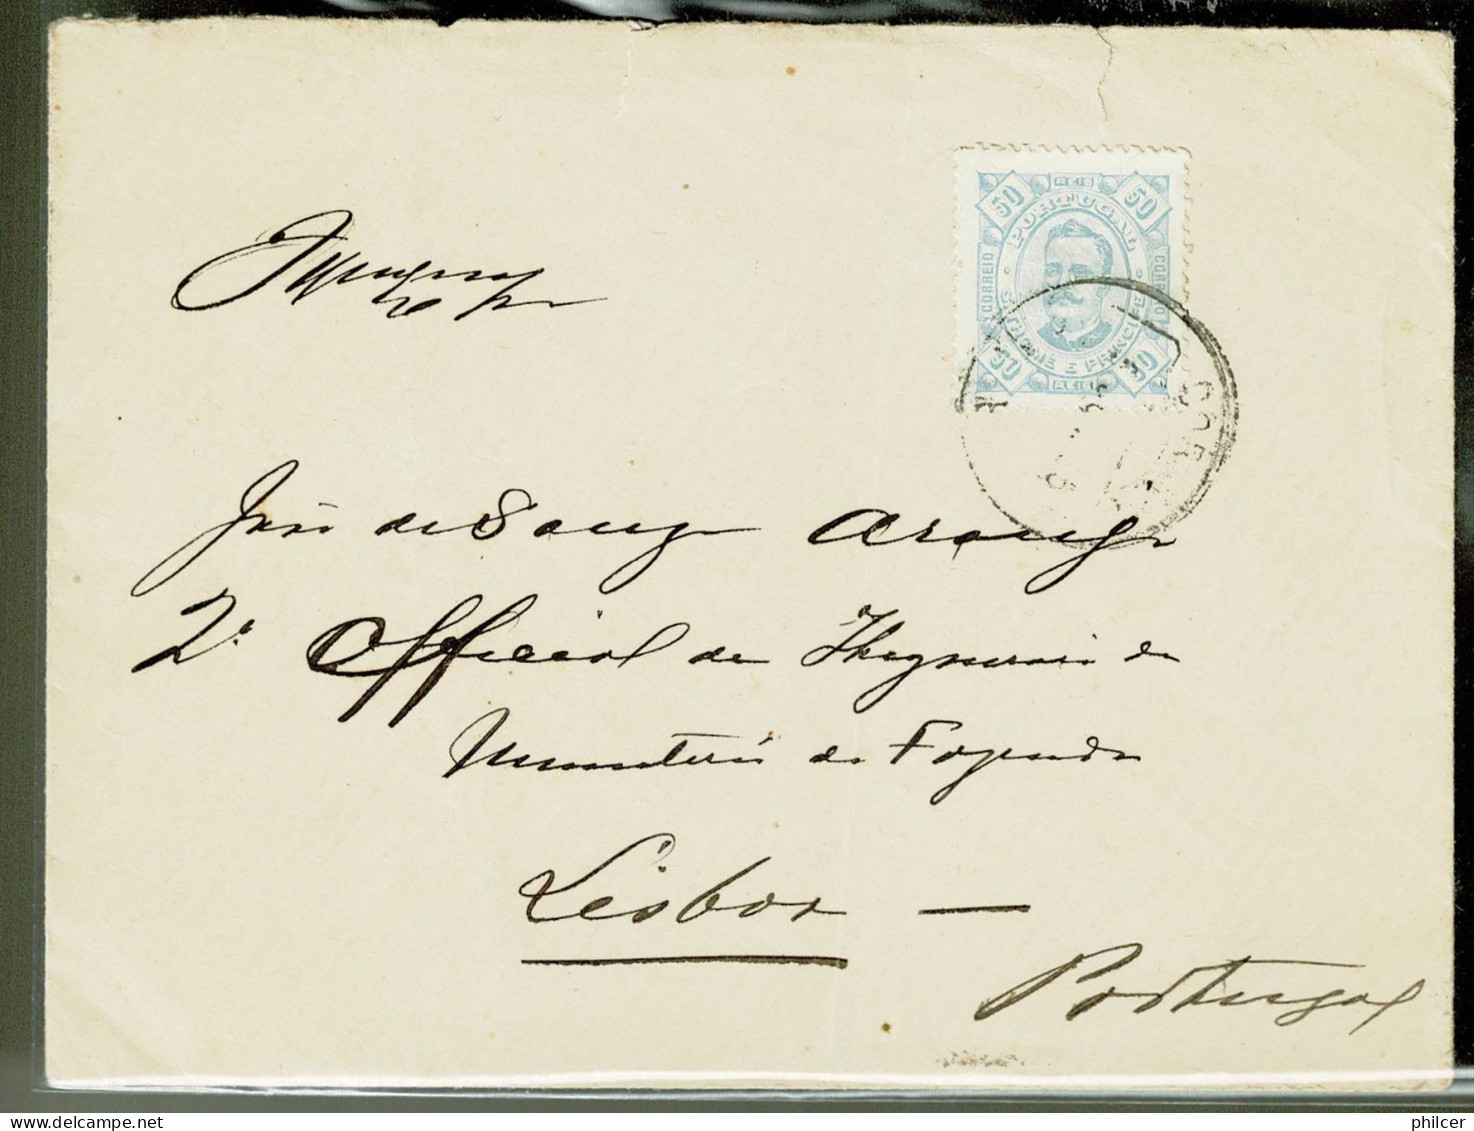 50 REIS 50
PORTUGAL
CORREIO CORREIO
S. THOMÉ E PRINCIPE
50 REIS 50
José de Souza Araujo
2º Official da Thezouraria do
Ministerio da Fazenda
Lisboa —
Portugal
philcer